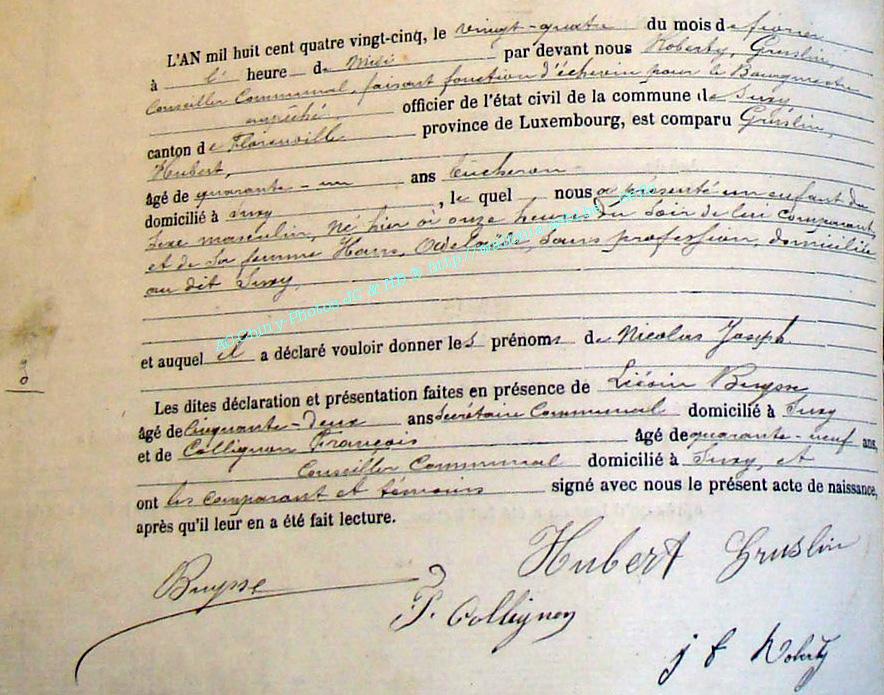 L'AN mil huit cent quatre vingt-cinq, le vingt-quatre du mois de février
à heure de midi par devant nous Roberty,
Conseiller Communal, faisant fonction d'échevin pour le Bourgmestre
empêché officier de l'état civil de la commune de Suxy
canton de Florenville province de Luxembourg, est comparu Gruslin,
Hubert,
âgé de quarante-un ans bûcheron
domicilié à Suxy, le quel nous a présenté un enfant du
sexe masculin, né hier à onze heures du soir de lui comparant,
et de sa femme Hans, Adelaïde, sans profession, domiciliée
au dit Suxy,
et auquel il a déclaré vouloir donner les prénoms de Nicolas Joseph
Les dites déclaration et présentation faites en présence de Liévin Buysse
âgé de Cinquante-deux ans Secrétaire Communal domicilié à Suxy
et de Collignon François âgé de quarante-neuf ans,
Conseiller Communal domicilié à Suxy, et
ont les comparant et témoins signé avec nous le présent acte de naissance,
après qu'il leur en a été fait lecture.
Hubert Gruslin
Buysse
F. Collignon